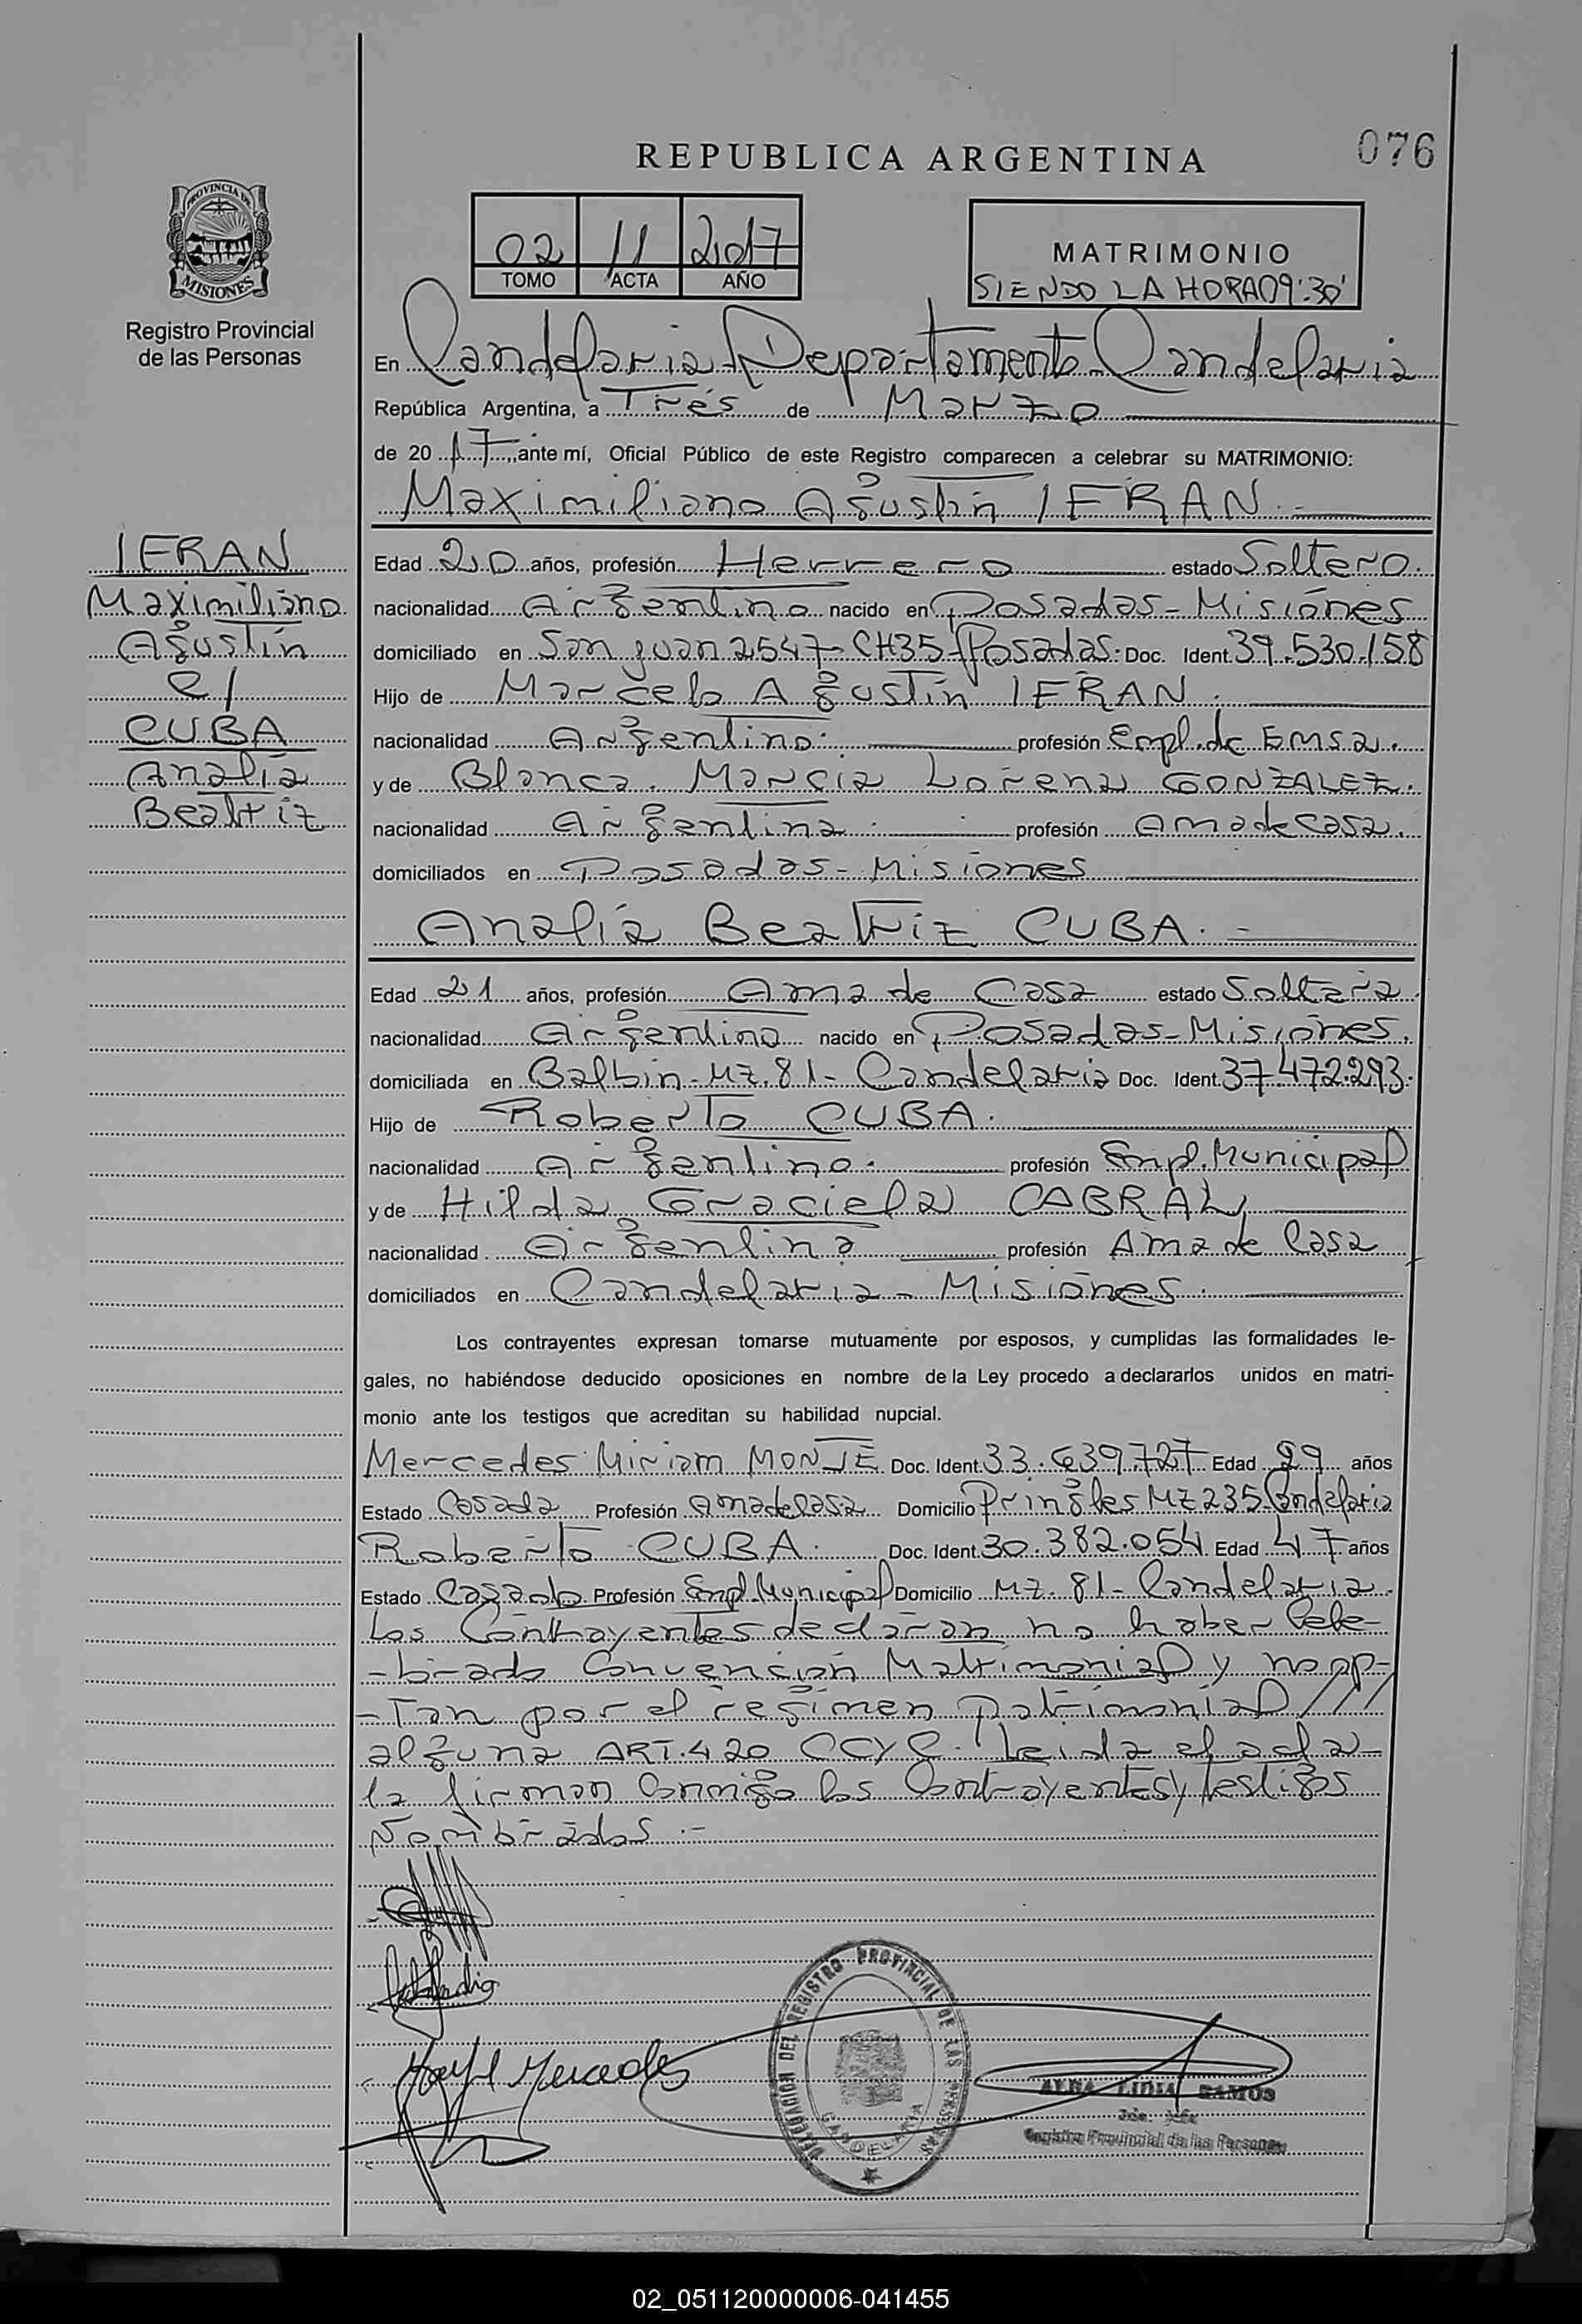 REPUBLICA ARGENTINA
076
PROVINCIA DE
MISIONES
Registro Provincial
de las Personas
02 11 2017
TOMO ACTA AÑO
MATRIMONIO
SIENDO LA HORA 09:30'
En Candelaria Departamento Candelaria
República Argentina, a Tres de Marzo
de 20 17, ante mí, Oficial Público de este Registro comparecen a celebrar su MATRIMONIO:
Maximiliano Agustín IFRAN.-
IFRAN
Maximiliano
Agustín
c/
CUBA
Analía
Beatriz
Edad 20 años, profesión Herrero estado Soltero.
nacionalidad Argentino nacido en Posadas-Misiones
domiciliado en San Juan 2547-CH35-Posadas. Doc. Ident. 39.530.158
Hijo de Marcelo Agustín IFRAN.
nacionalidad Argentino. profesión Empl. de Emsa.
y de Blanca Marcia Lorena GONZALEZ.
nacionalidad Argentina. profesión Ama de Casa.
domiciliados en Posadas-Misiones
Analía Beatriz CUBA.-
Edad 21 años, profesión Ama de Casa estado Soltera
nacionalidad Argentina nacido en Posadas-Misiones.
domiciliada en Balbin-Mz.81-Candelaria Doc. Ident. 37.472.293.
Hijo de Roberto CUBA.
nacionalidad Argentino. profesión Empl. Municipal
y de Hilda Graciela CABRAL
nacionalidad Argentina profesión Ama de Casa
domiciliados en Candelaria-Misiones.
Los contrayentes expresan tomarse mutuamente por esposos, y cumplidas las formalidades le-
gales, no habiéndose deducido oposiciones en nombre de la Ley procedo a declararlos unidos en matri-
monio ante los testigos que acreditan su habilidad nupcial.
Mercedes Miriam MONJE Doc. Ident. 33.639.727 Edad 29 años
Estado Casada Profesión Ama de Casa Domicilio Pringles Mz 235-Candelaria
Roberto CUBA. Doc. Ident. 30.382.054 Edad 47 años
Estado Casado Profesión Empl. Municipal Domicilio Mz. 81-Candelaria.
Los Contrayentes declaran no haber Cele-
-brado Convención Matrimonial y no op-
-tan por el regimen patrimonial ///
alguna ART. 420 CCyC. Leida el acta
la firman conmigo los Contrayentes y testigos
Nombrados.-
Mercedes
DELEGACION DEL REGISTRO PROVINCIAL DE LAS PERSONAS
CANDELARIA
LIDIA RAMOS
Registro Provincial de las Personas
02_051120000006-041455